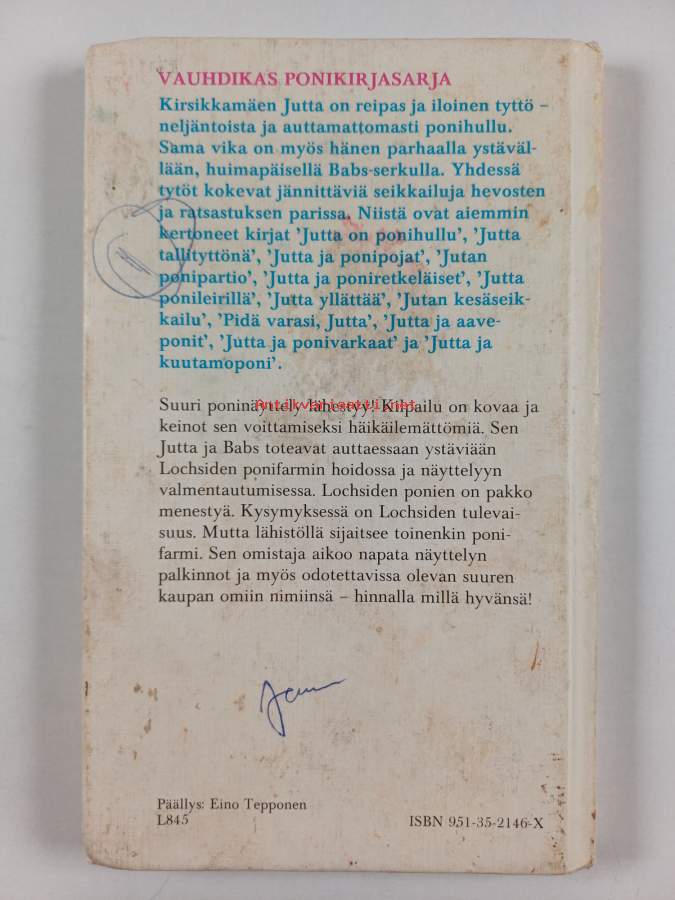 VAUHDIKAS PONIKIRJASARJA
Kirsikkamäen Jutta on reipas ja iloinen tyttö –
neljäntoista ja auttamattomasti ponihullu.
Sama vika on myös hänen parhaalla ystäväl-
lään, huimapäisellä Babs-serkulla. Yhdessä
tytöt kokevat jännittäviä seikkailuja hevosten
ja ratsastuksen parissa. Niistä ovat aiemmin
kertoneet kirjat ’Jutta on ponihullu’, ’Jutta
tallityttönä’, ’Jutta ja ponipojat’, ’Jutan
ponipartio’, ’Jutta ja poniretkeläiset’, ’Jutta
ponileirillä’, ’Jutta yllättää’, ’Jutan kesäseik-
kailu’, ’Pidä varasi, Jutta’, ’Jutta ja aave-
ponit’, ’Jutta ja ponivarkaat’ ja ’Jutta ja
kuutamoponi’.
Suuri poninäyttely lähestyy! Kilpailu on kovaa ja
Antikvariaatti.net
keinot sen voittamiseksi häikäilemättömiä. Sen
Jutta ja Babs toteavat auttaessaan ystäviään
Lochsiden ponifarmin hoidossa ja näyttelyyn
valmentautumisessa. Lochsiden ponien on pakko
menestyä. Kysymyksessä on Lochsiden tulevai-
suus. Mutta lähistöllä sijaitsee toinenkin poni-
farmi. Sen omistaja aikoo napata näyttelyn
palkinnot ja myös odotettavissa olevan suuren
kaupan omiin nimiinsä – hinnalla millä hyvänsä!
Päällys: Eino Tepponen
L845
ISBN 951-35-2146-X